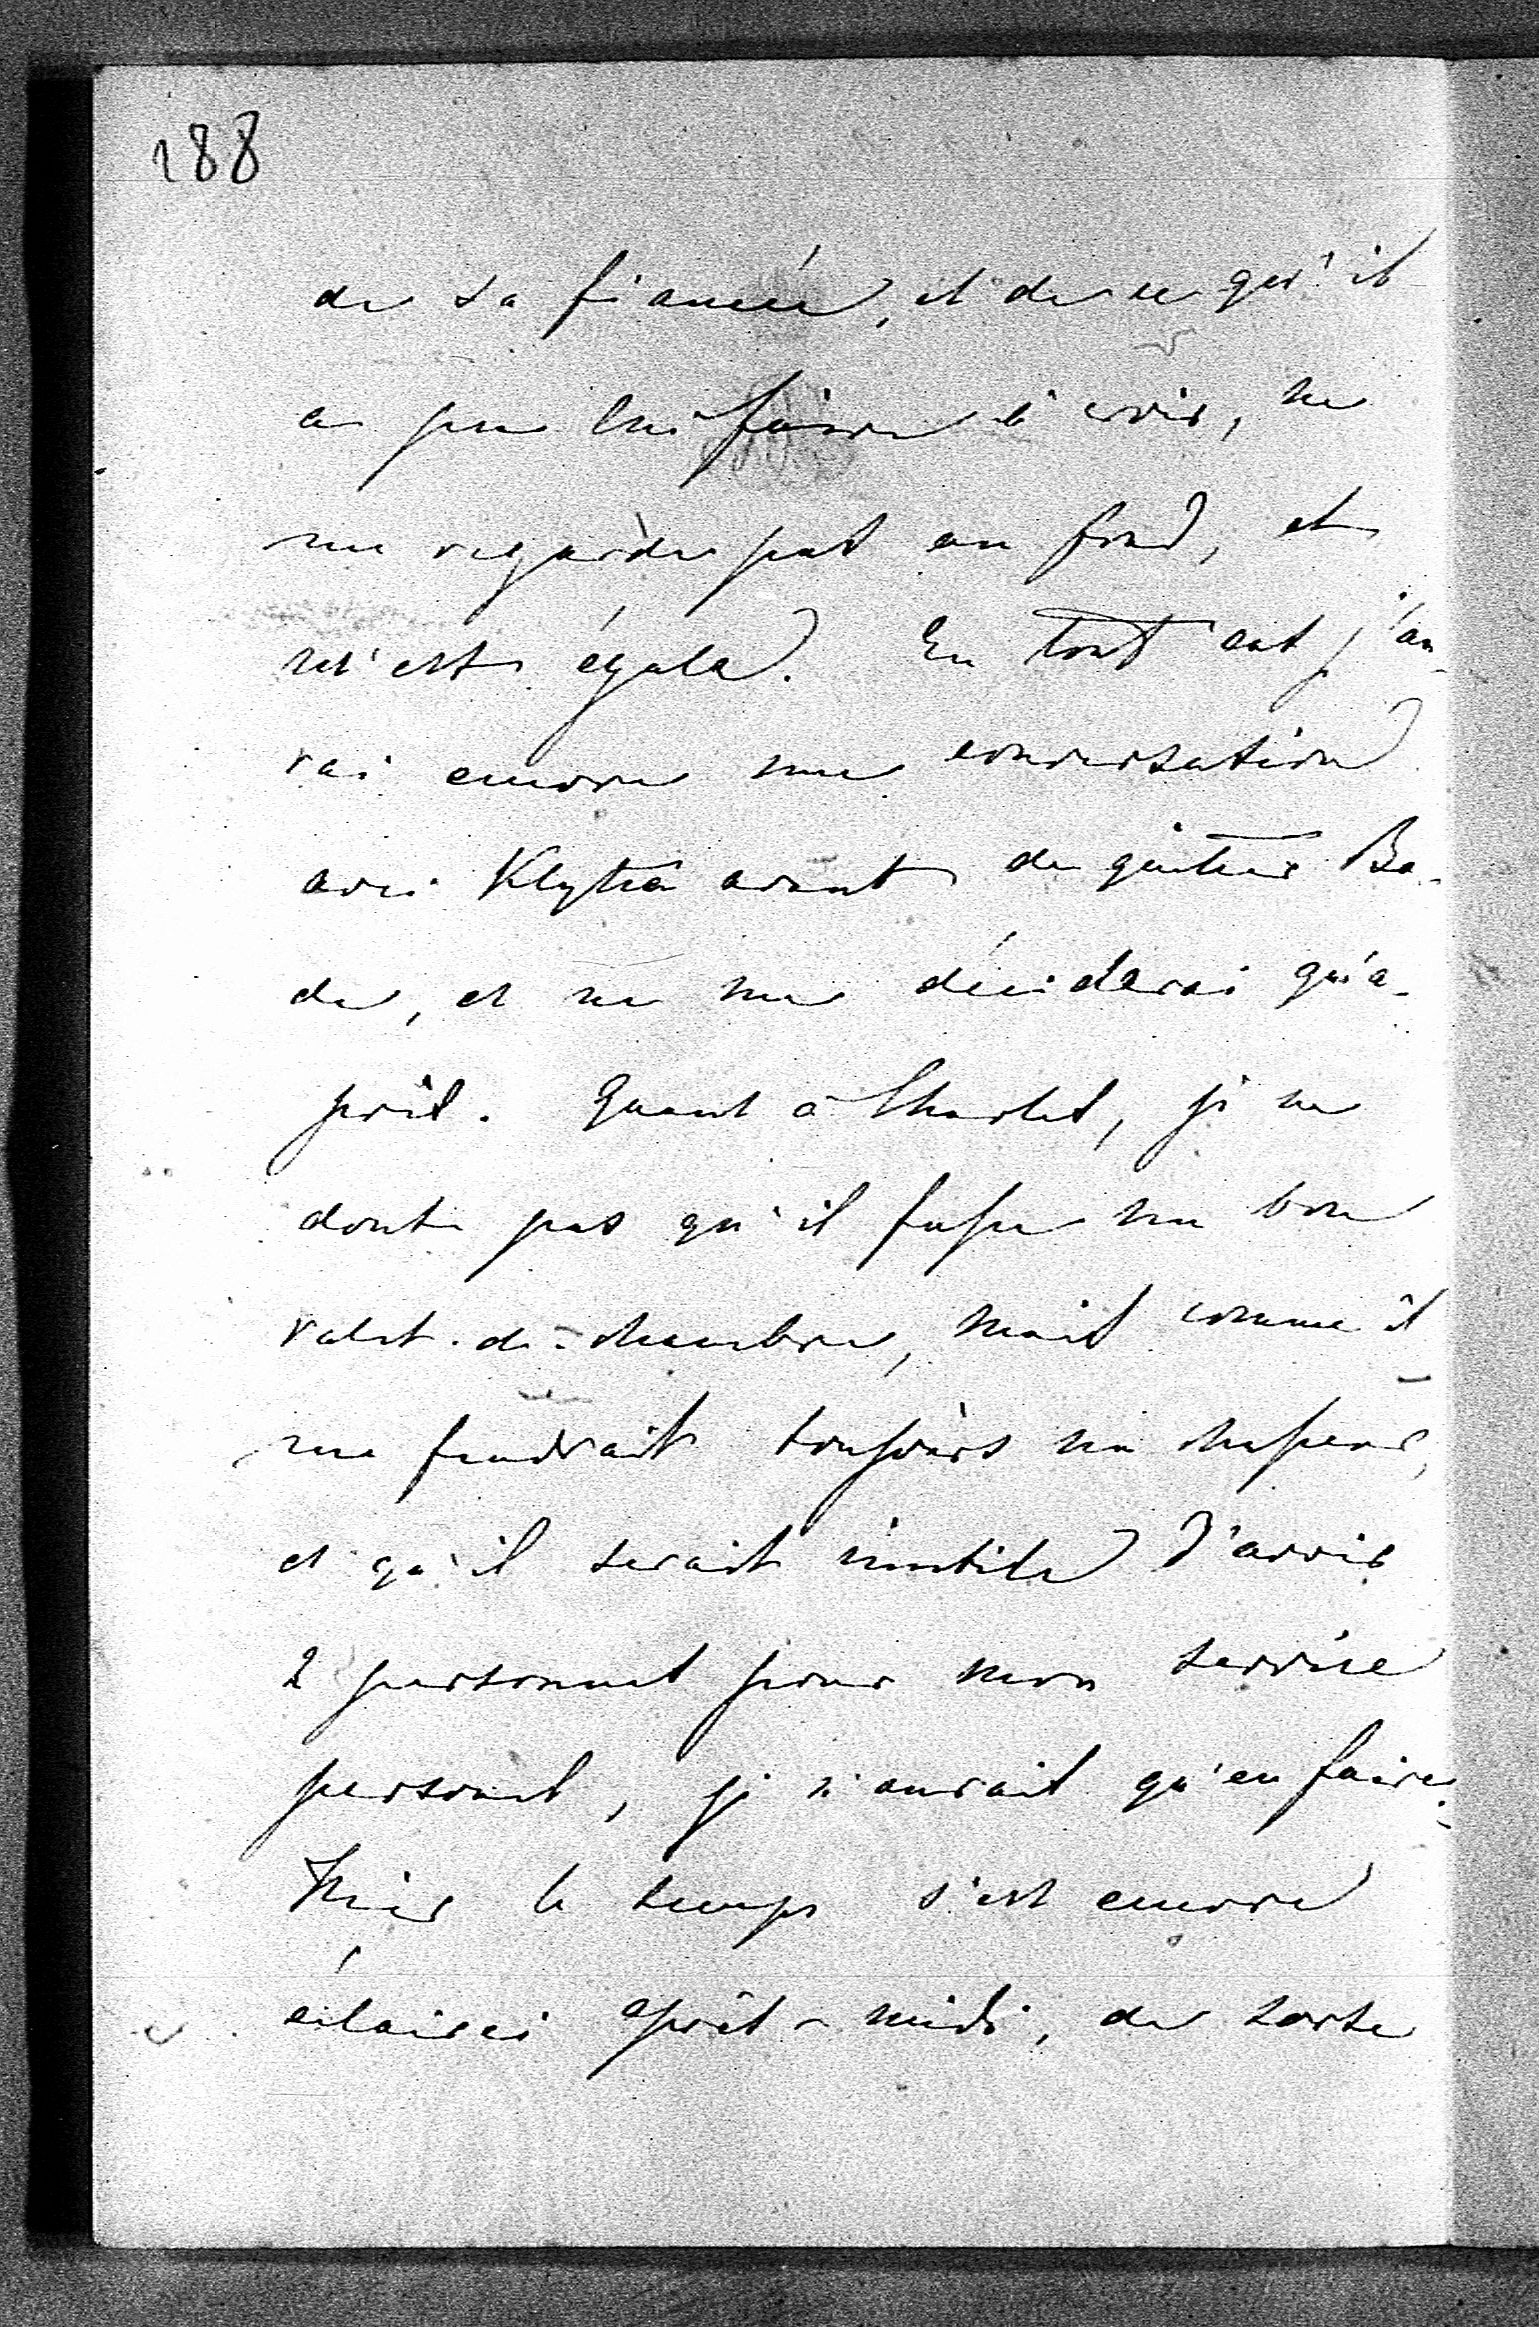 188
de sa fiancée, et de ce qu'il
a pu lui faire à croir, ne
me regarde pas au fond, et
m'est égale. En tout cas j'au-
rai encore une conversation
avec Klytia avant de quitter Ba-
de, et ne me déciderai qu'a-
près. Quant à Charles, je ne
doute pas qu'il fasse un bon
valet-de-chambre, mais comme il
me faudrait toujours un chasseur,
et qu'il serait inutile d'avoir
2 personnes pour mon service
personel, je n'aurait qu'en faire.
Hier le temps s'est encore
éclairci après-midi, de sorte